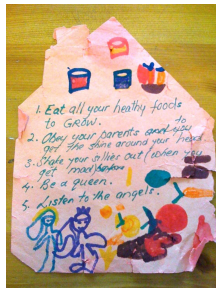 1. Eat all your heathy foods
to GROW.
2. Obey your parents and to you
get the shine around your head
3. Shake your sillies out (when you
get mad)
4. Be a queen.
5. Listen to the angels.